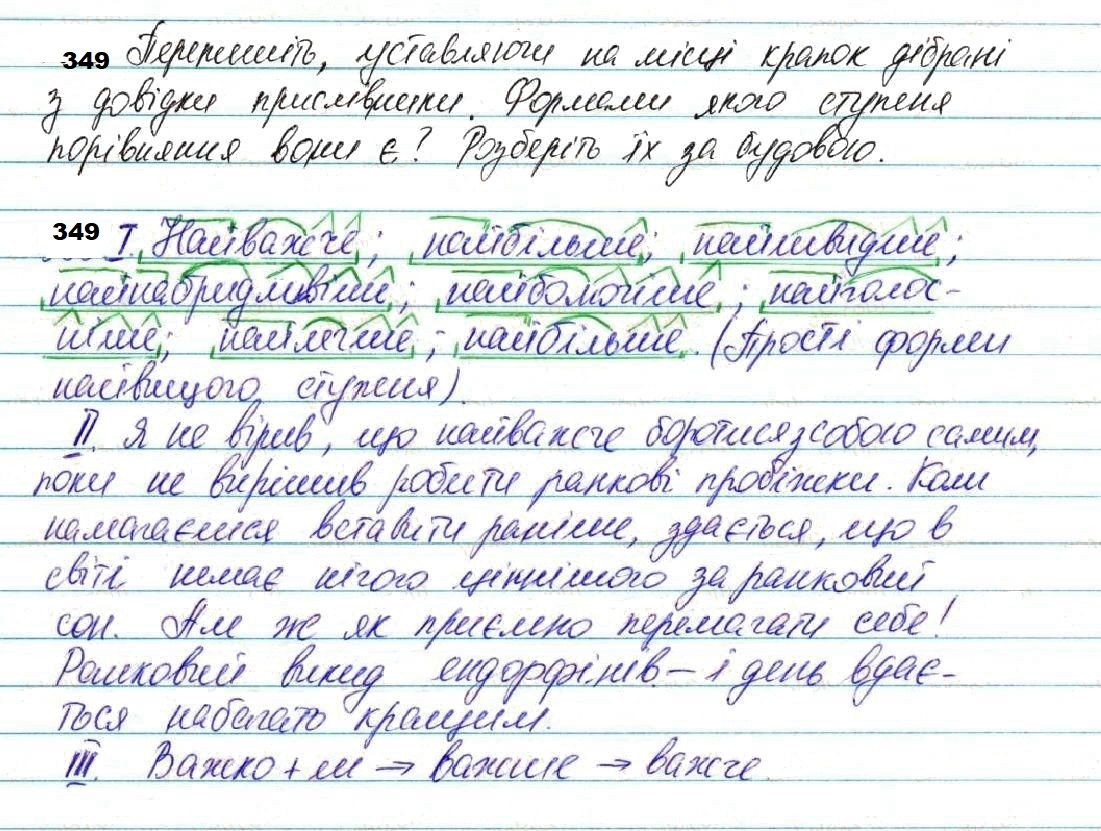 349 Перепишіть, уставляючи на місці крапок дібрані
з довідки прислівники. Формами якого ступеня
порівняння вони є? Розберіть їх за будовою.
349 I. Найважче; найбільше; найшвидше;
найнабридливіше; найболючіше; найголос-
ніше; найлегше; найбільше. (Прості форми
найвищого ступеня).
II. Я не вірив, що найважче боротися з собою самим,
поки не вирішив робити ранкові пробіжки. Коли
намагаєшся вставити раніше, здається, що в
світі немає нічого ціннішого за ранковий
сон. Але ж як приємно перемагати себе!
Ранковий викид ендорфінів – і день вдає-
ться набагато кращим.
III. Важко + ш → важше → важче.